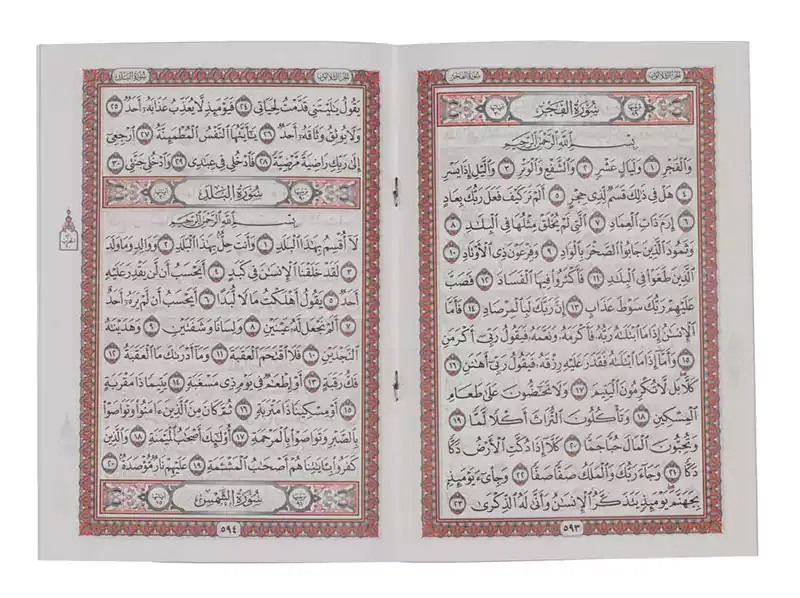 الجزء الثلاثون سورة الفجر
سُورَةُ الفَجْرِ
بِسْمِ اللَّهِ الرَّحْمَٰنِ الرَّحِيمِ
وَالْفَجْرِ ١ وَلَيَالٍ عَشْرٍ ٢ وَالشَّفْعِ وَالْوَتْرِ ٣ وَاللَّيْلِ إِذَا يَسْرِ
٤ هَلْ فِي ذَٰلِكَ قَسَمٌ لِّذِي حِجْرٍ ٥ أَلَمْ تَرَ كَيْفَ فَعَلَ رَبُّكَ بِعَادٍ
٦ إِرَمَ ذَاتِ الْعِمَادِ ٧ الَّتِي لَمْ يُخْلَقْ مِثْلُهَا فِي الْبِلَٰدِ ٨
وَثَمُودَ الَّذِينَ جَابُوا الصَّخْرَ بِالْوَادِ ٩ وَفِرْعَوْنَ ذِي الْأَوْتَادِ ١٠
الَّذِينَ طَغَوْا فِي الْبِلَٰدِ ١١ فَأَكْثَرُوا فِيهَا الْفَسَادَ ١٢ فَصَبَّ
عَلَيْهِمْ رَبُّكَ سَوْطَ عَذَابٍ ١٣ إِنَّ رَبَّكَ لَبِالْمِرْصَادِ ١٤ فَأَمَّا
الْإِنسَٰنُ إِذَا مَا ابْتَلَىٰهُ رَبُّهُ فَأَكْرَمَهُ وَنَعَّمَهُ فَيَقُولُ رَبِّي أَكْرَمَنِ
١٥ وَأَمَّا إِذَا مَا ابْتَلَىٰهُ فَقَدَرَ عَلَيْهِ رِزْقَهُ فَيَقُولُ رَبِّي أَهَٰنَنِ ١٦
كَلَّا بَل لَّا تُكْرِمُونَ الْيَتِيمَ ١٧ وَلَا تَحَٰضُّونَ عَلَىٰ طَعَامِ
الْمِسْكِينِ ١٨ وَتَأْكُلُونَ التُّرَاثَ أَكْلًا لَّمًّا ١٩
وَتُحِبُّونَ الْمَالَ حُبًّا جَمًّا ٢٠ كَلَّا إِذَا دُكَّتِ الْأَرْضُ دَكًّا
دَكًّا ٢١ وَجَاءَ رَبُّكَ وَالْمَلَكُ صَفًّا صَفًّا ٢٢ وَجِايءَ يَوْمَئِذٍ
بِجَهَنَّمَ يَوْمَئِذٍ يَتَذَكَّرُ الْإِنسَٰنُ وَأَنَّىٰ لَهُ الذِّكْرَىٰ ٢٣
٥٩٣
الجزء الثلاثون سورة البلد
يَقُولُ يَٰلَيْتَنِي قَدَّمْتُ لِحَيَاتِي ٢٤ فَيَوْمَئِذٍ لَّا يُعَذِّبُ عَذَابَهُ أَحَدٌ ٢٥
وَلَا يُوثِقُ وَثَاقَهُ أَحَدٌ ٢٦ يَٰأَيَّتُهَا النَّفْسُ الْمُطْمَئِنَّةُ ٢٧ ارْجِعِي
إِلَىٰ رَبِّكِ رَاضِيَةً مَّرْضِيَّةً ٢٨ فَادْخُلِي فِي عِبَٰدِي ٢٩ وَادْخُلِي جَنَّتِي ٣٠
سُورَةُ البَلَدِ
بِسْمِ اللَّهِ الرَّحْمَٰنِ الرَّحِيمِ
لَا أُقْسِمُ بِهَٰذَا الْبَلَدِ ١ وَأَنتَ حِلٌّ بِهَٰذَا الْبَلَدِ ٢ وَوَالِدٍ وَمَا وَلَدَ
٣ لَقَدْ خَلَقْنَا الْإِنسَٰنَ فِي كَبَدٍ ٤ أَيَحْسَبُ أَن لَّن يَقْدِرَ عَلَيْهِ
أَحَدٌ ٥ يَقُولُ أَهْلَكْتُ مَالًا لُّبَدًا ٦ أَيَحْسَبُ أَن لَّمْ يَرَهُ أَحَدٌ
٧ أَلَمْ نَجْعَل لَّهُ عَيْنَيْنِ ٨ وَلِسَانًا وَشَفَتَيْنِ ٩ وَهَدَيْنَٰهُ
النَّجْدَيْنِ ١٠ فَلَا اقْتَحَمَ الْعَقَبَةَ ١١ وَمَا أَدْرَىٰكَ مَا الْعَقَبَةُ ١٢
فَكُّ رَقَبَةٍ ١٣ أَوْ إِطْعَٰمٌ فِي يَوْمٍ ذِي مَسْغَبَةٍ ١٤ يَتِيمًا ذَا مَقْرَبَةٍ
١٥ أَوْ مِسْكِينًا ذَا مَتْرَبَةٍ ١٦ ثُمَّ كَانَ مِنَ الَّذِينَ ءَامَنُوا وَتَوَاصَوْا
بِالصَّبْرِ وَتَوَاصَوْا بِالْمَرْحَمَةِ ١٧ أُولَٰئِكَ أَصْحَٰبُ الْمَيْمَنَةِ ١٨ وَالَّذِينَ
كَفَرُوا بِـَٔايَٰتِنَا هُمْ أَصْحَٰبُ الْمَشْـَٔمَةِ ١٩ عَلَيْهِمْ نَارٌ مُّؤْصَدَةٌ ٢٠
سُورَةُ الشَّمْسِ
٥٩٤